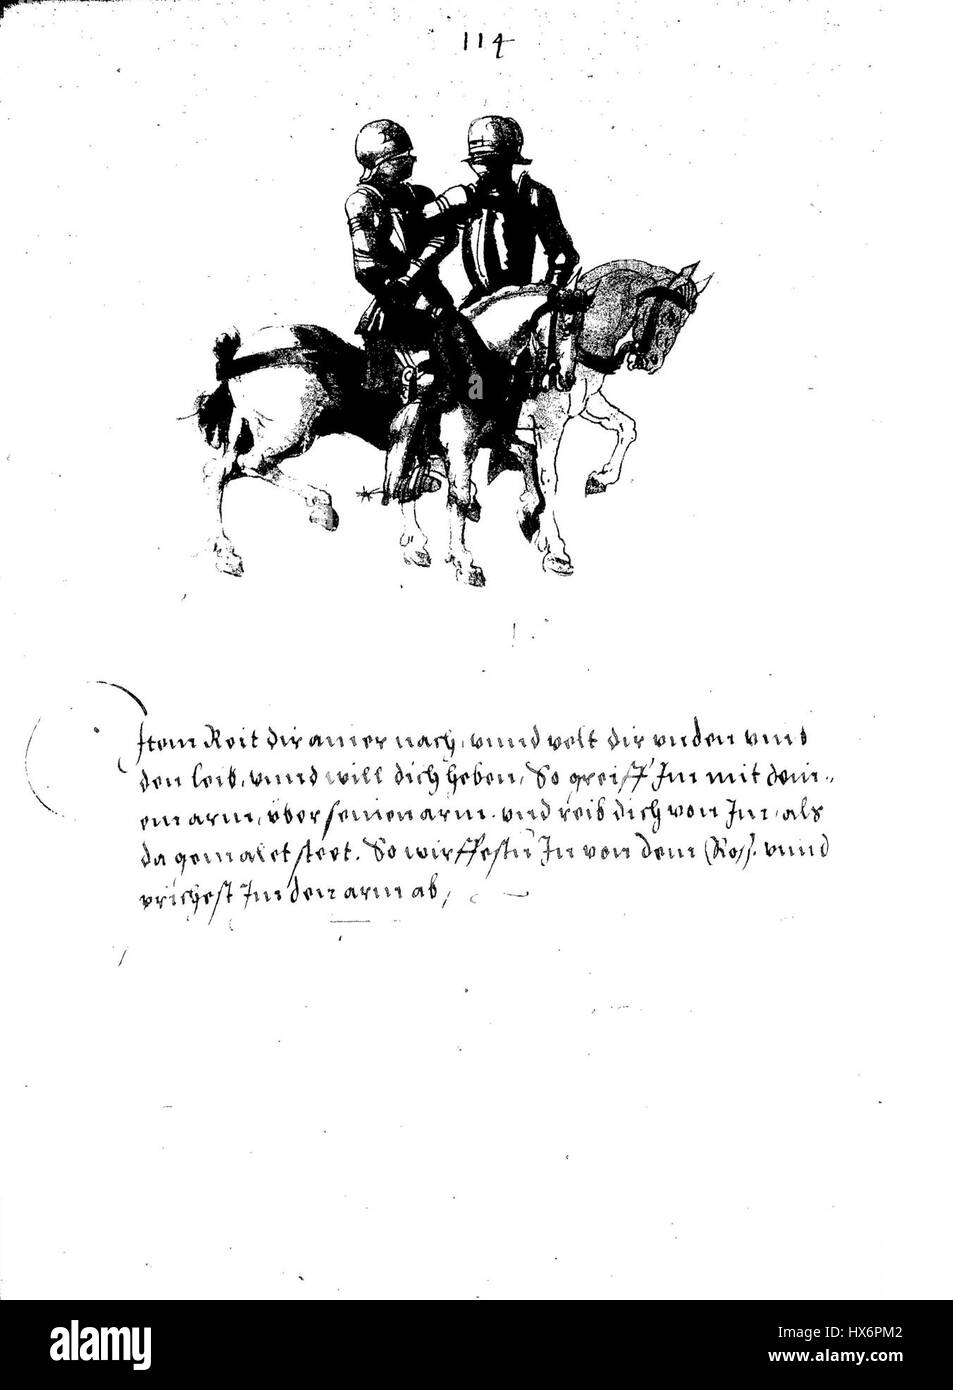 114
Item Reit dir ainer nach, vnnd velt dir vnden vmb
den leib, vnnd will dich heben, So greiff Im mit dein-
em arm, vber seinen arm. vnd reib dich von Im, als
da gemalet steet. So wirffestu In von dem Ross. vnnd
prichest Im den arm ab,
a
alamy
Image ID: HX6PM2
www.alamy.com